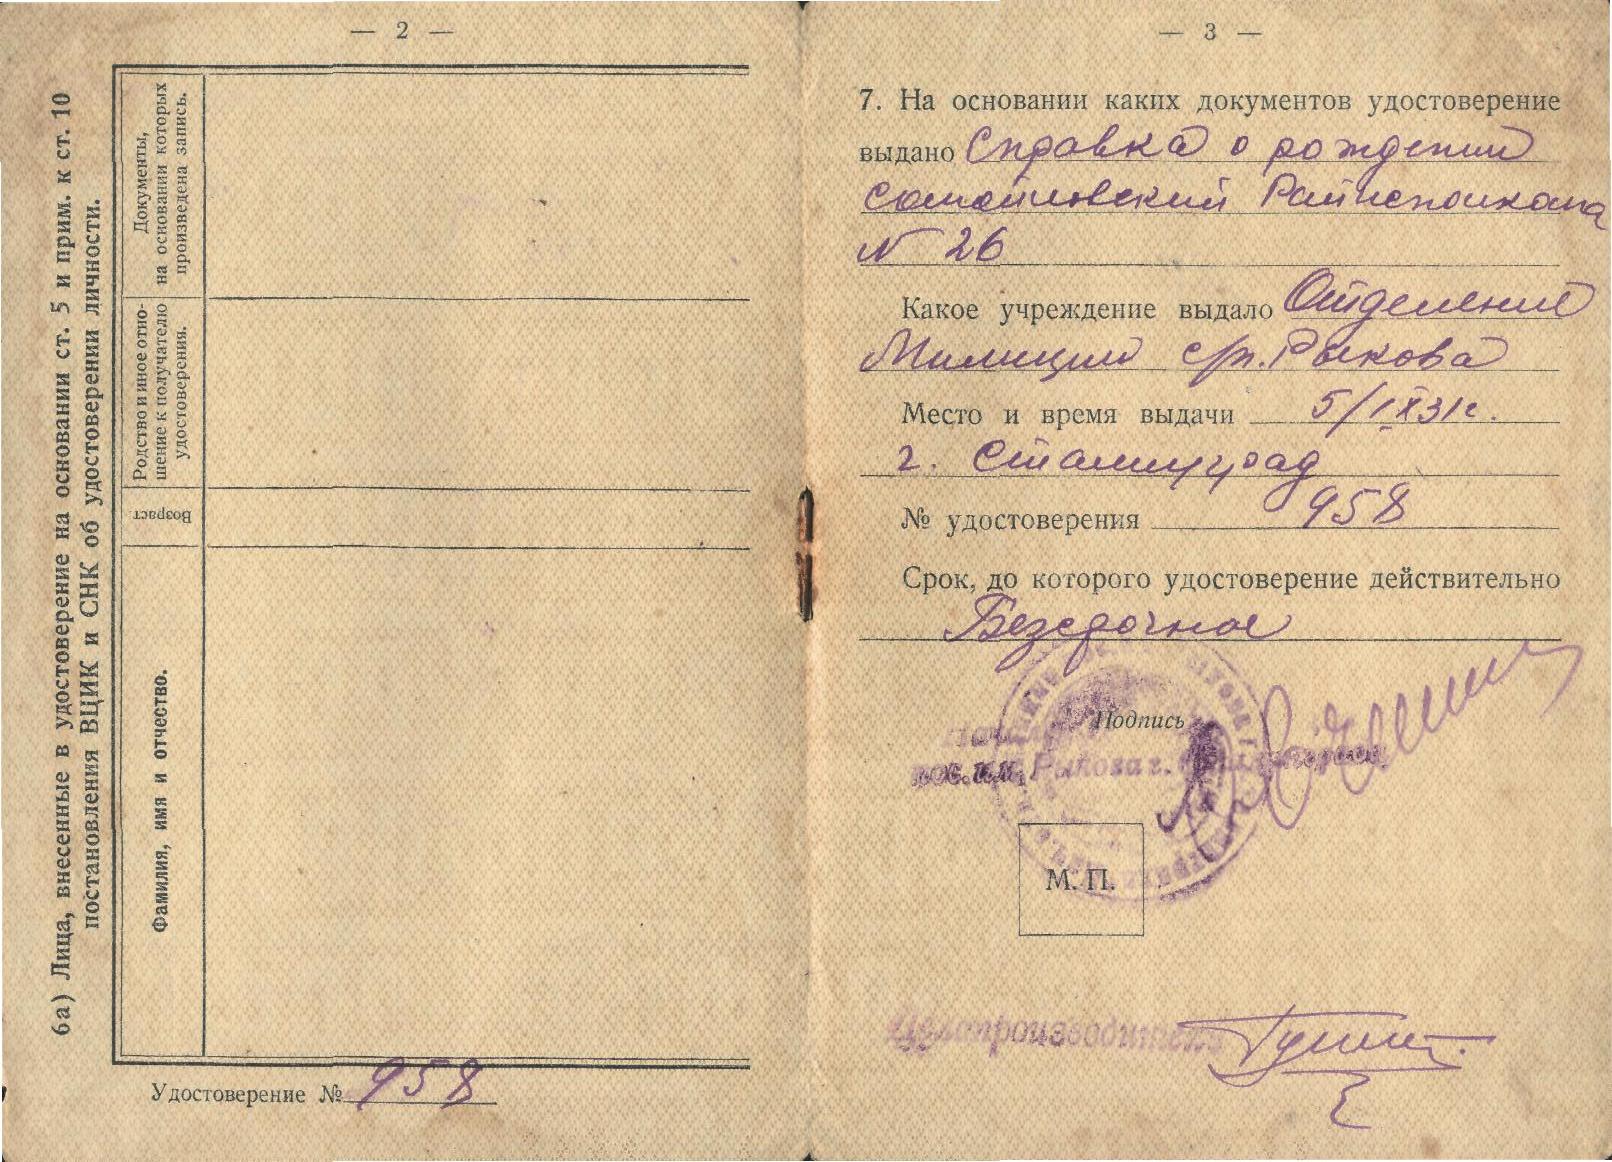 — 2 —
6а) Лица, внесенные в удостоверение на основании ст. 5 и прим. к ст. 10
постановления ВЦИК и СНК об удостоверении личности.
Фамилия, имя и отчество.
Возраст
Родство и иное отно-
шение к получателю
удостоверения.
Документы,
на основании которых
произведена запись.
Удостоверение № 958
— 3 —
7. На основании каких документов удостоверение
выдано Справка о рождении
самойловский Райисполкома
N 26
Какое учреждение выдало Отделение
Милиции ст. Рыкова
Место и время выдачи 5/IX 31 г.
г. Сталинград
№ удостоверения 958
Срок, до которого удостоверение действительно
Безсрочное
Подпись
Рыкова г.
М. П.
Делопроизводитель